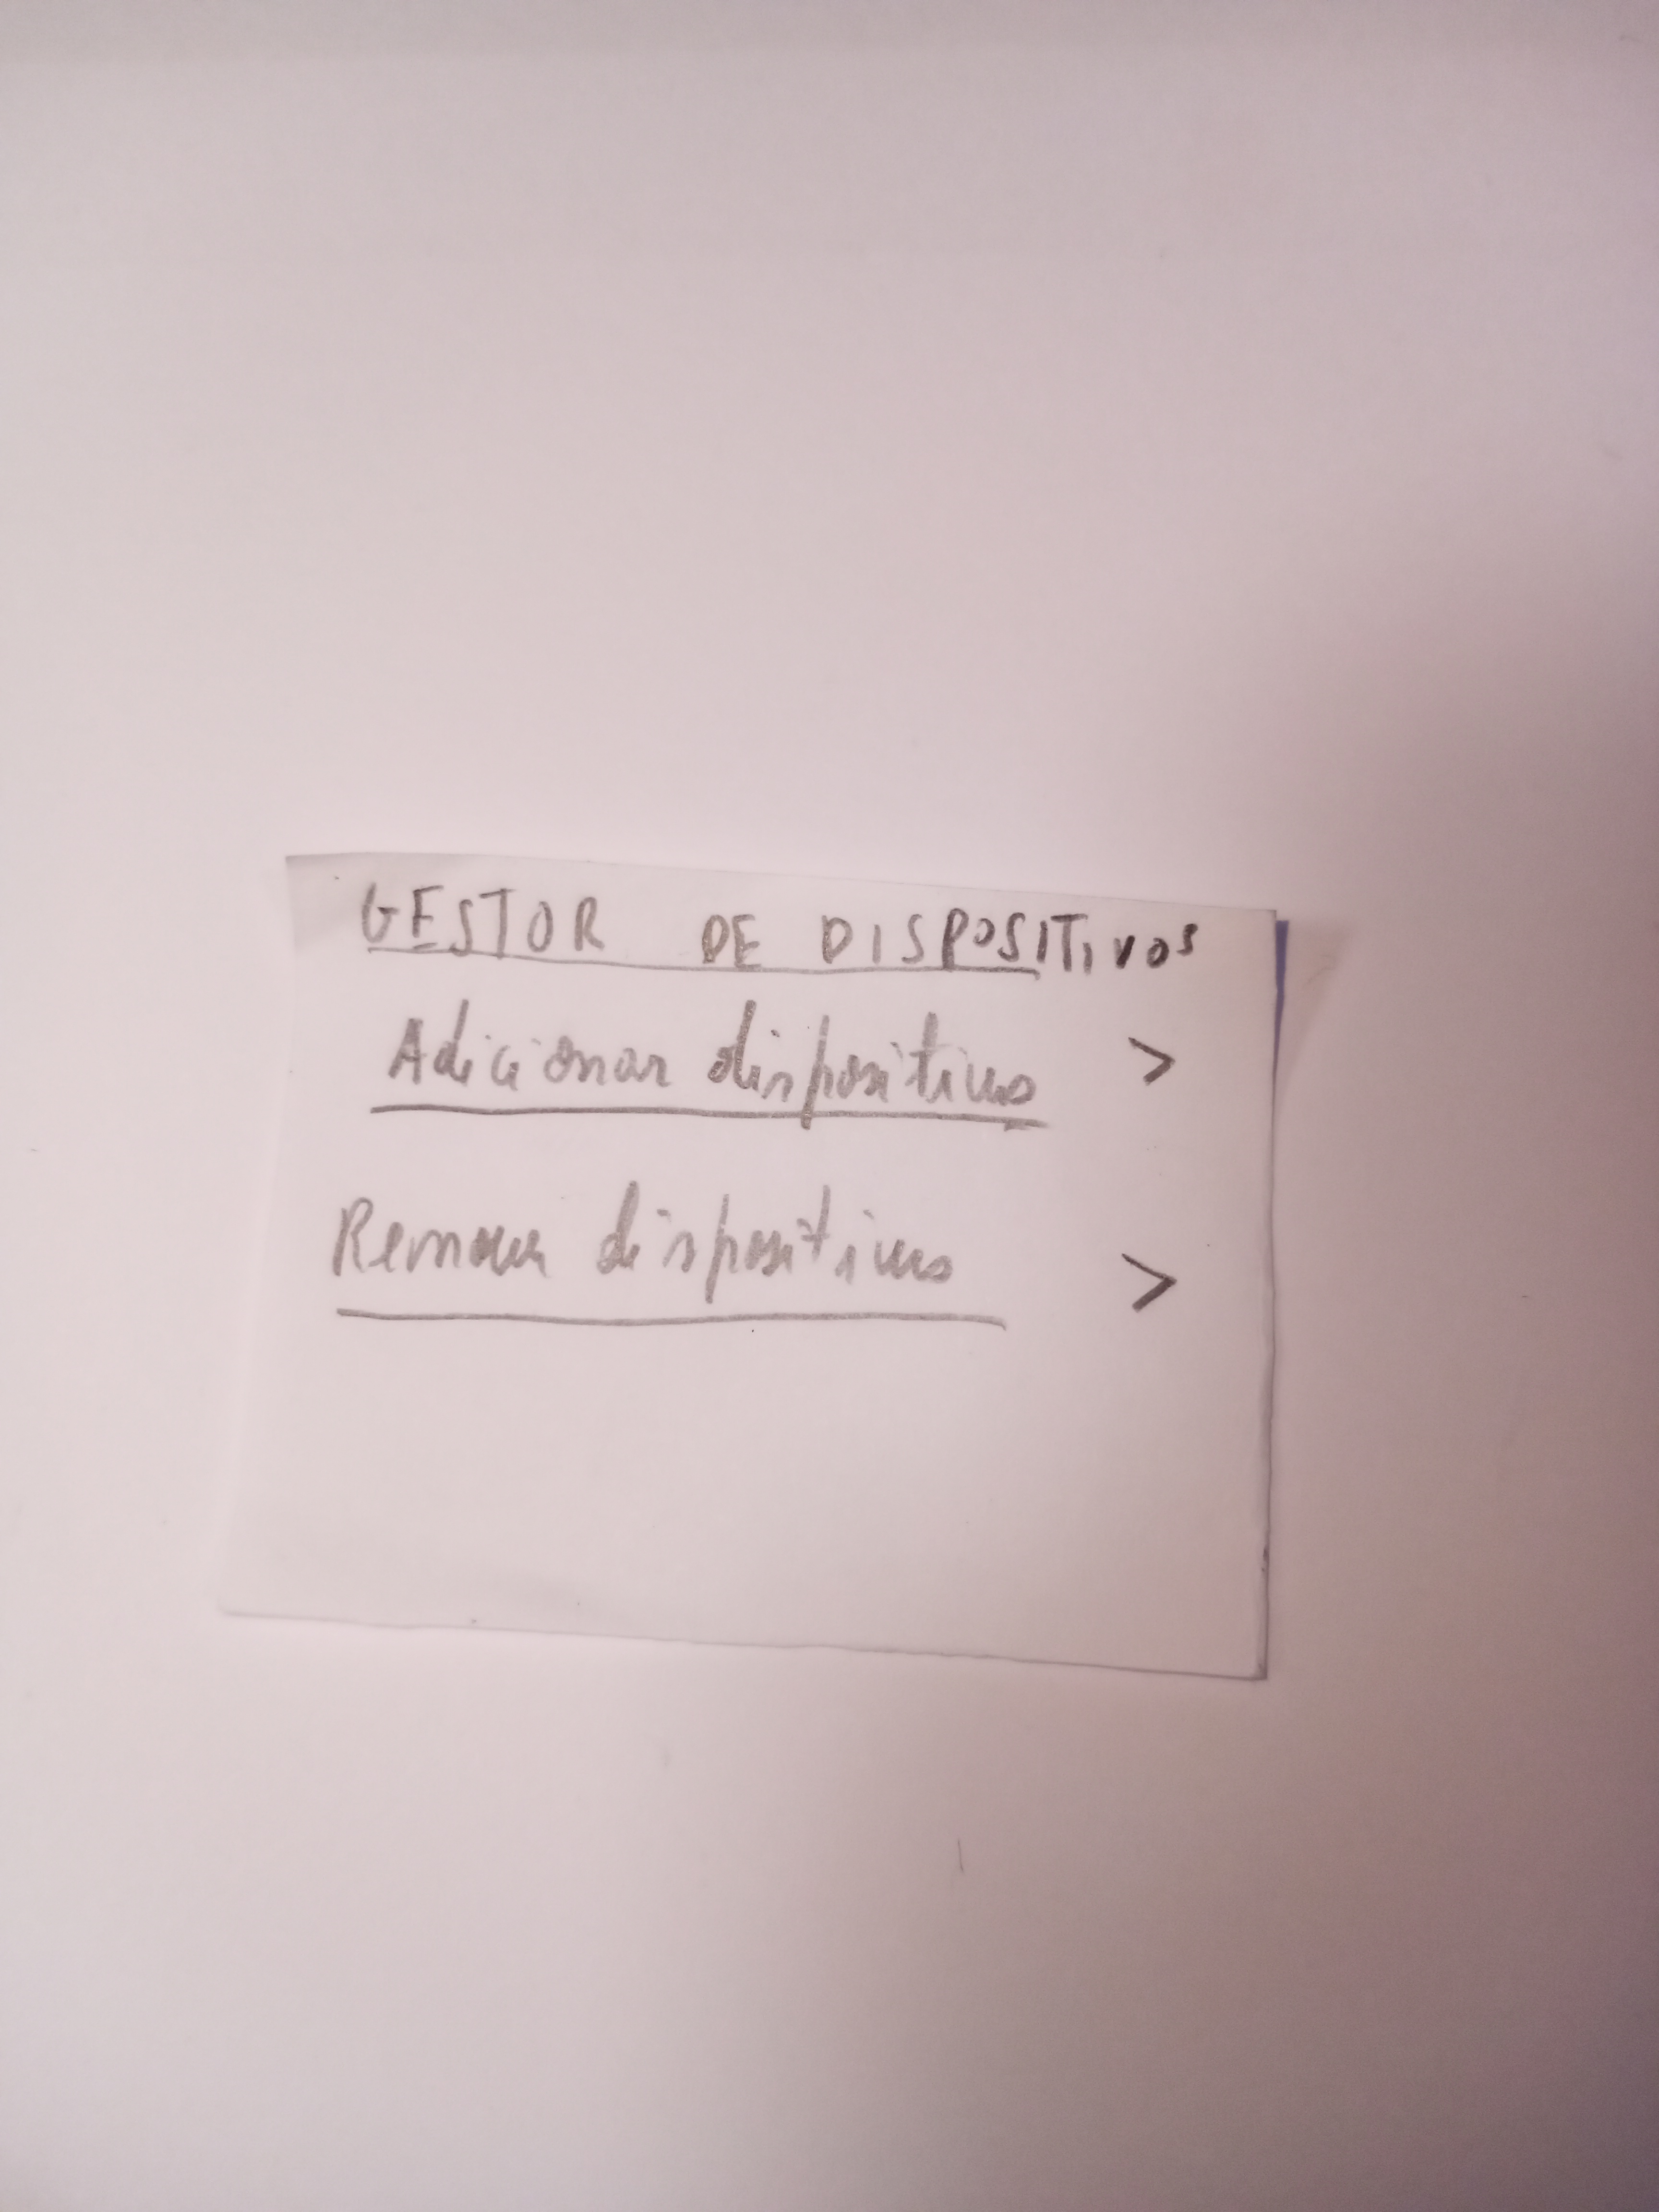 GESTOR DE DISPOSITIVOS
Adicionar dispositivo >
Remover dispositivo >